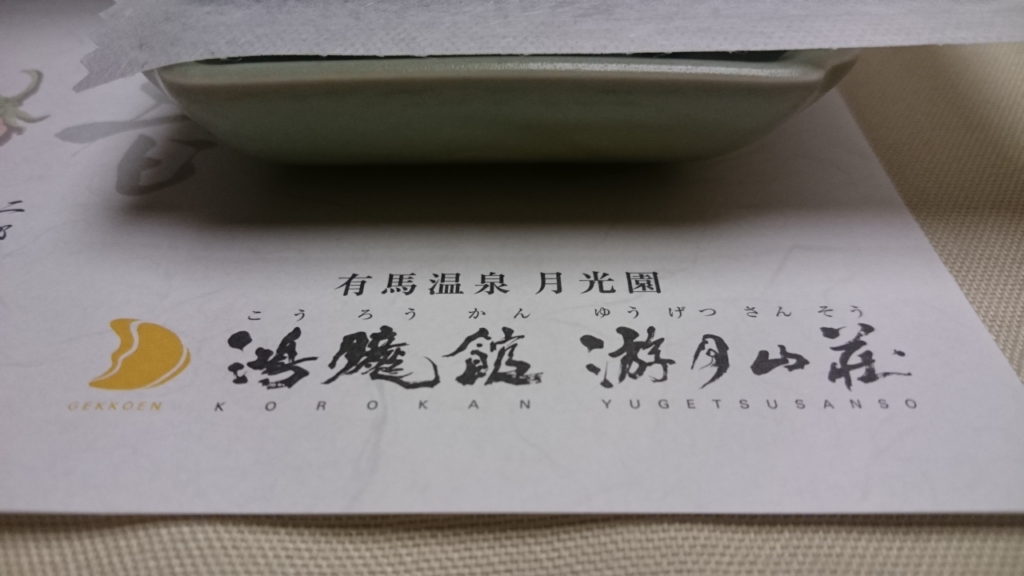 有馬温泉 月光園
こうろうかん ゆうげつさんそう
鴻朧館 游月山荘
GEKKOEN KOROKAN YUGETSUSANSO